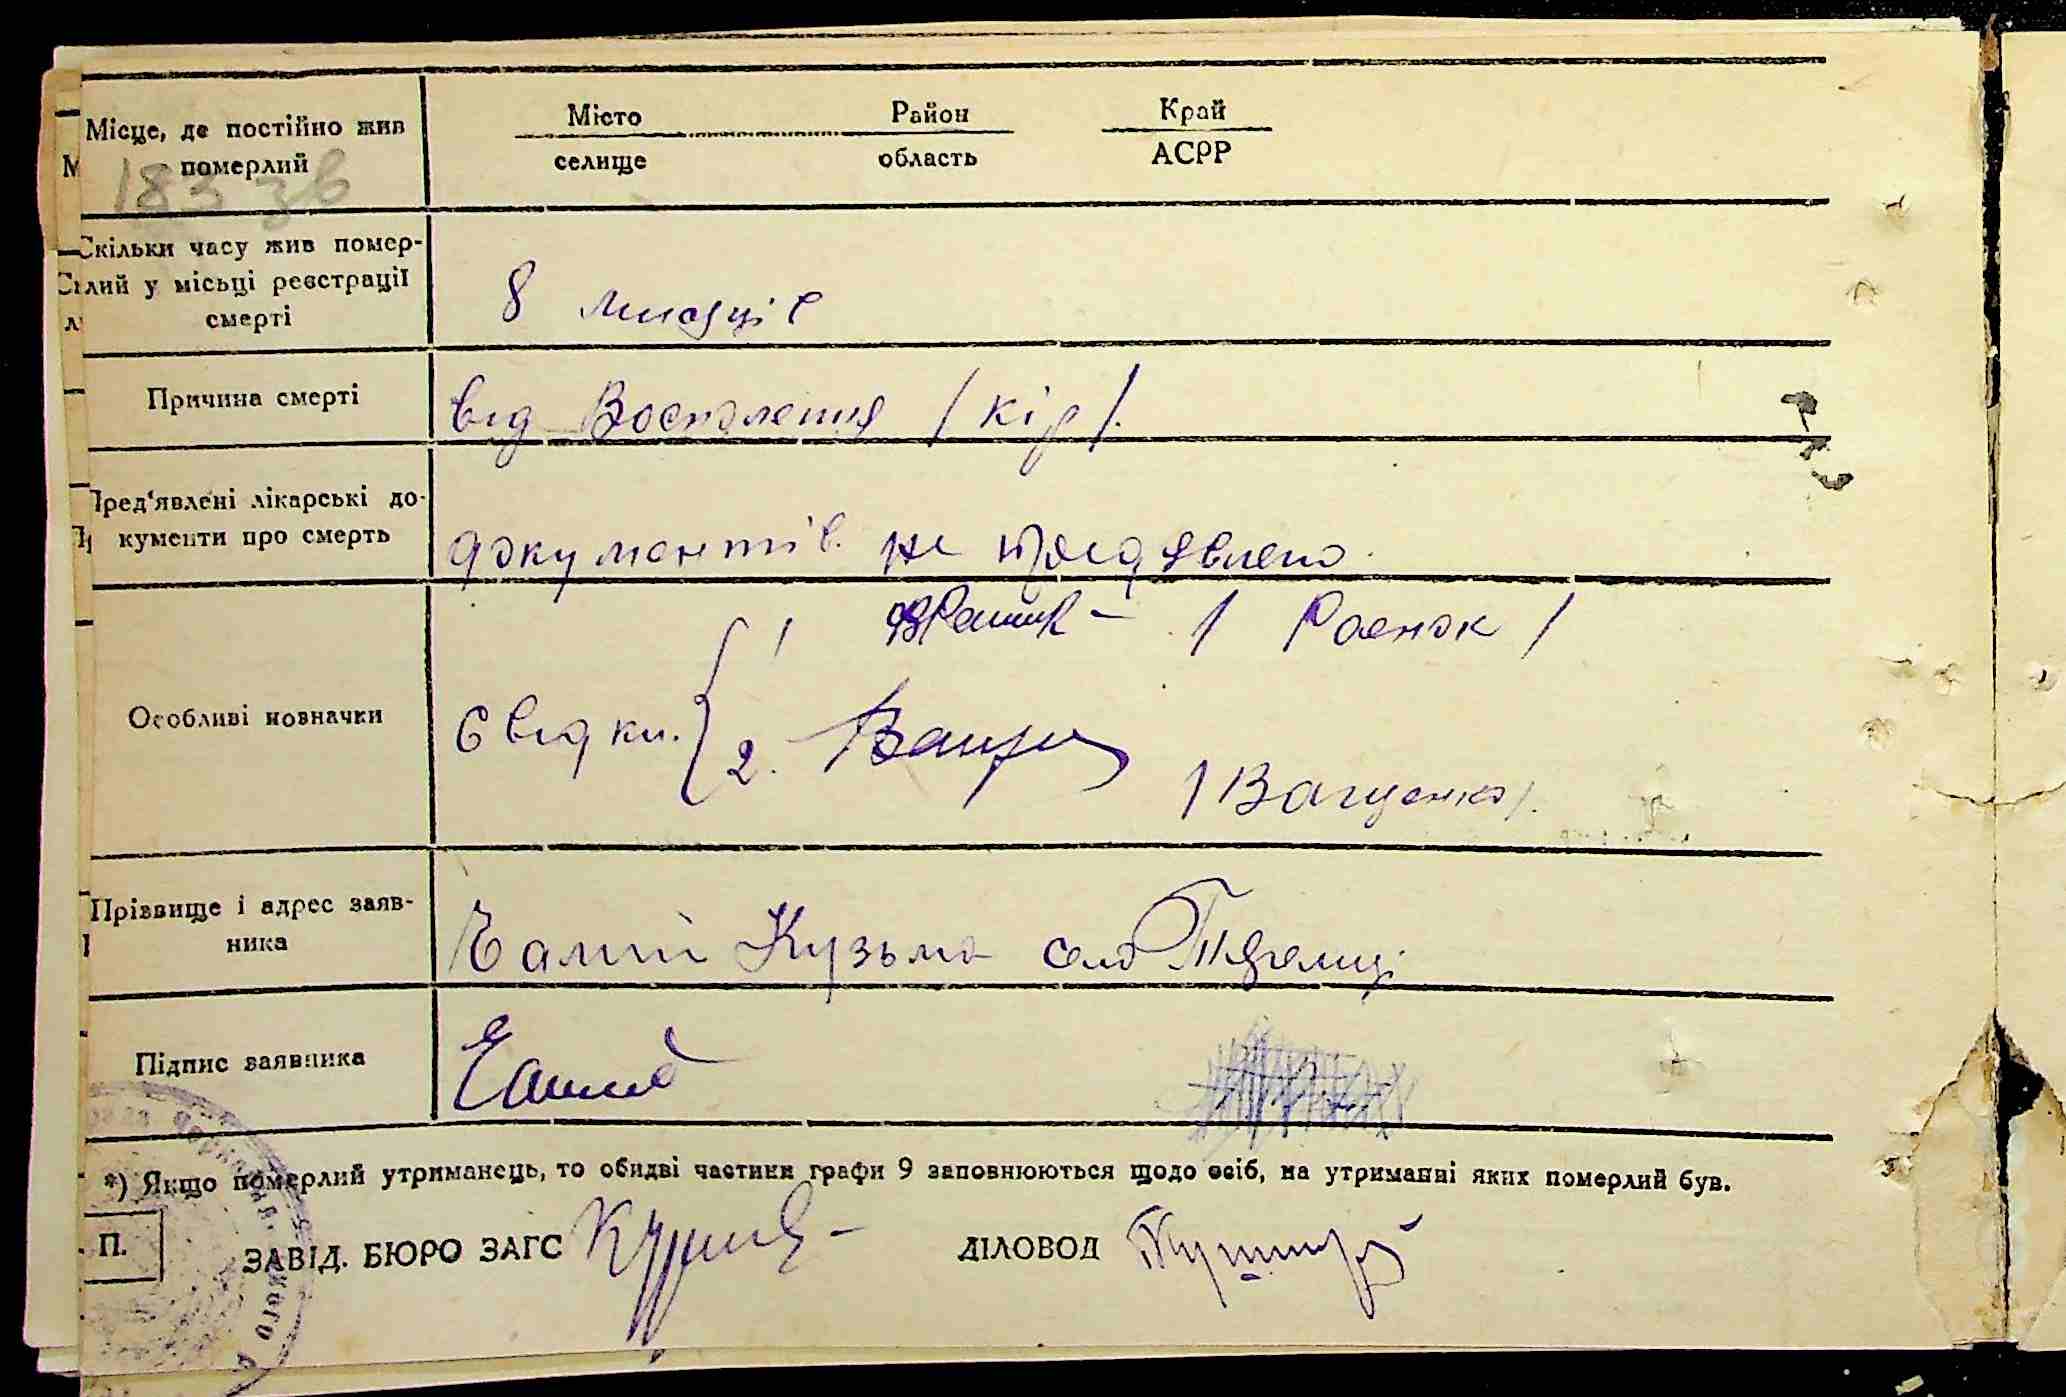 Місце, де постійно жив
померлий
183 зв
Місто Район Край
селище область АСРР
Скільки часу жив помер-
лий у місьці реєстрації
смерті
8 мисяців
Причина смерті
від Воспаления /кір/.
Пред'явлені лікарські до-
кументи про смерть
документів не предявлено.
Особливі новначки
Свідки. 1 / Роенок /
2. Ващен /Ващенко/.
Прізвище і адрес заяв-
ника
Чалий Кузьма село
Підпис заявника
Чалий
*) Якщо померлий утриманець, то обидві частини графи 9 заповнюються щодо осіб, на утриманні яких померлий був.
П.
ЗАВІД. БЮРО ЗАГС ДІЛОВОД